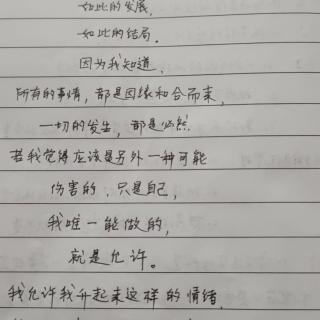 如此的发展,
如此的结局.
因为我知道,
所有的事情,都是因缘和合而来,
一切的发生,都是必然.
若我觉得应该是另外一种可能
伤害的,只是自己,
我唯一能做的,
就是允许。
我允许我升起来这样的情绪,